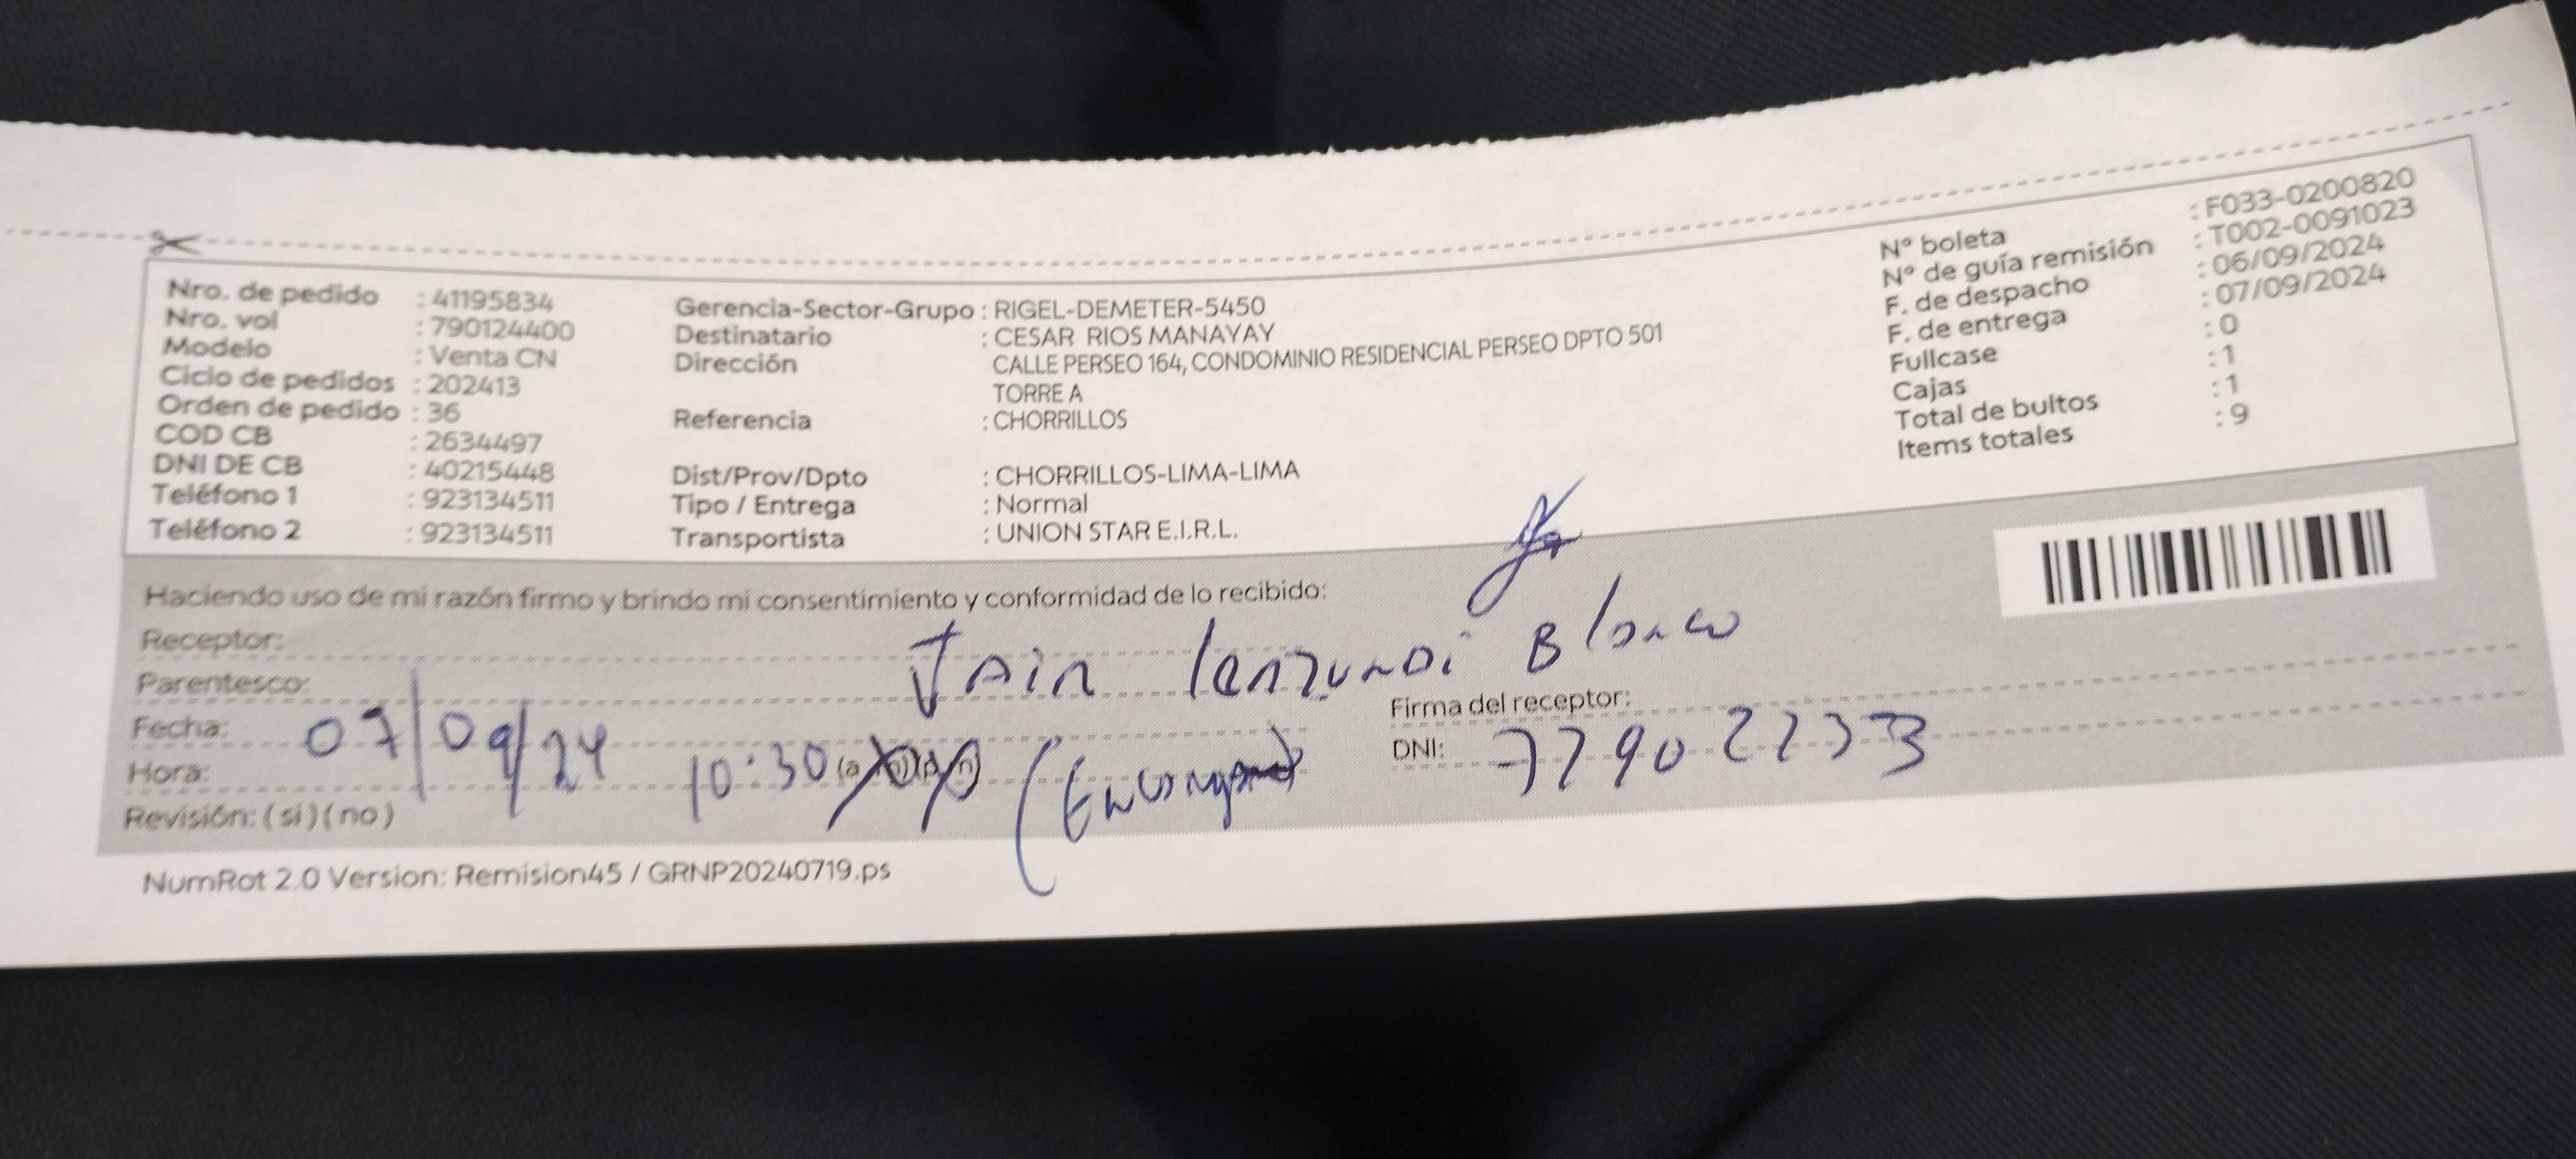 Nro. de pedido : 41195834
Nro. vol : 790124400
Modelo : Venta CN
Ciclo de pedidos : 202413
Orden de pedido : 36
COD CB : 2634497
DNI DE CB : 40215448
Teléfono 1 : 923134511
Teléfono 2 : 923134511
Gerencia-Sector-Grupo : RIGEL-DEMETER-5450
Destinatario : CESAR RIOS MANAYAY
Dirección CALLE PERSEO 164, CONDOMINIO RESIDENCIAL PERSEO DPTO 501
TORRE A
Referencia : CHORRILLOS
Dist/Prov/Dpto : CHORRILLOS-LIMA-LIMA
Tipo / Entrega : Normal
Transportista : UNION STAR E.I.R.L.
N° boleta : F033-0200820
N° de guía remisión : T002-0091023
F. de despacho : 06/09/2024
F. de entrega : 07/09/2024
Fullcase : 0
Cajas : 1
Total de bultos : 1
Items totales : 9
Haciendo uso de mi razón firmo y brindo mi consentimiento y conformidad de lo recibido:
Receptor:
Jair Blanco
Parentesco:
Firma del receptor:
Fecha: 07/09/24
Hora: 10:30
DNI: 77902233
Revisión: ( si ) ( no )
NumRot 2.0 Version: Remision45 / GRNP20240719.ps